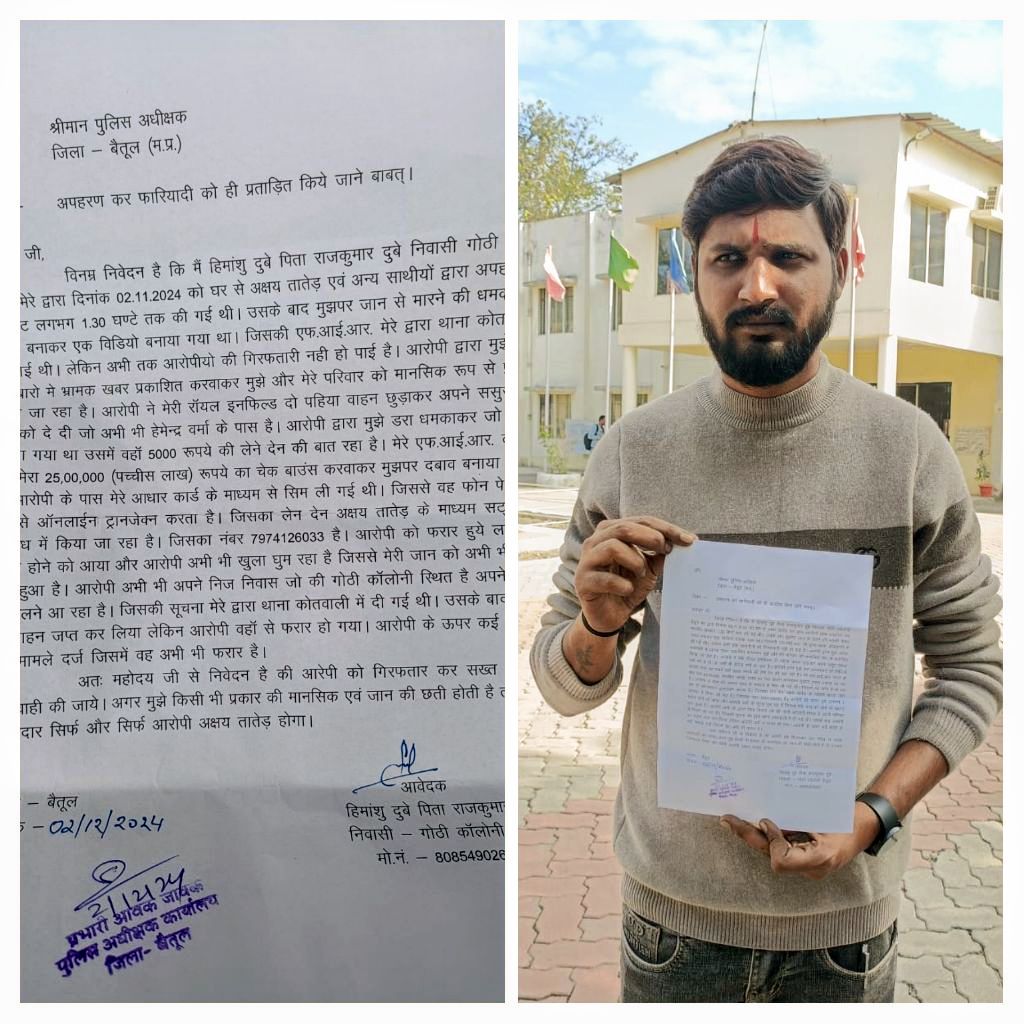 श्रीमान पुलिस अधीक्षक
जिला – बैतूल (म.प्र.)
अपहरण कर फारियादी को ही प्रताड़ित किये जाने बाबत्।
जी,
विनम्र निवेदन है कि मैं हिमांशु दुबे पिता राजकुमार दुबे निवासी गोठी
मेरे द्वारा दिनांक 02.11.2024 को घर से अक्षय तातेड़ एवं अन्य साथीयों द्वारा अपह
लगभग 1.30 घण्टे तक की गई थी। उसके बाद मुझपर जान से मारने की धमक
बनाकर एक विडियो बनाया गया था। जिसकी एफ.आई.आर. मेरे द्वारा थाना कोत
ई थी। लेकिन अभी तक आरोपीयो की गिरफतारी नही हो पाई है। आरोपी द्वारा मुझ
बारो मे भ्रामक खबर प्रकाशित करवाकर मुझे और मेरे परिवार को मानसिक रूप से
जा रहा है। आरोपी ने मेरी रॉयल इनफिल्ड दो पहिया वाहन छुड़ाकर अपने ससुर
को दे दी जो अभी भी हेमेन्द्र वर्मा के पास है। आरोपी द्वारा मुझे डरा धमकाकर जो
गया था उसमें वहॉ 5000 रूपये की लेने देन की बात रहा है। मेरे एफ.आई.आर.
मेरा 25,00,000 (पच्चीस लाख) रूपये का चेक बाउंस करवाकर मुझपर दबाव बनाया
आरोपी के पास मेरे आधार कार्ड के माध्यम से सिम ली गई थी। जिससे वह फोन पे
से ऑनलाईन ट्रानजेक्न करता है। जिसका लेन देन अक्षय तातेड़ के माध्यम सट्
ध में किया जा रहा है। जिसका नंबर 7974126033 है। आरोपी को फरार हुये ल
होने को आया और आरोपी अभी भी खुला घुम रहा है जिससे मेरी जान को अभी भी
हुआ है। आरोपी अभी भी अपने निज निवास जो की गोठी कॉलोनी स्थित है अपने
लने आ रहा है। जिसकी सूचना मेरे द्वारा थाना कोतवाली में दी गई थी। उसके बाद
ाहन जप्त कर लिया लेकिन आरोपी वहॉ से फरार हो गया। आरोपी के ऊपर कई
मामले दर्ज जिसमें वह अभी भी फरार है।
अतः महोदय जी से निवेदन है की आरपी को गिरफतार कर सख्त
ाही की जाये। अगर मुझे किसी भी प्रकार की मानसिक एवं जान की छती होती है त
दार सिर्फ और सिर्फ आरोपी अक्षय तातेड़ होगा।
आवेदक
– बैतूल
हिमांशु दुबे पिता राजकुमार
– 02/12/2024
निवासी – गोठी कॉलोनी
मो.नं. – 808549026
प्रभारी आवक जावक
पुलिस अधीक्षक कार्यालय
जिला- बैतूल